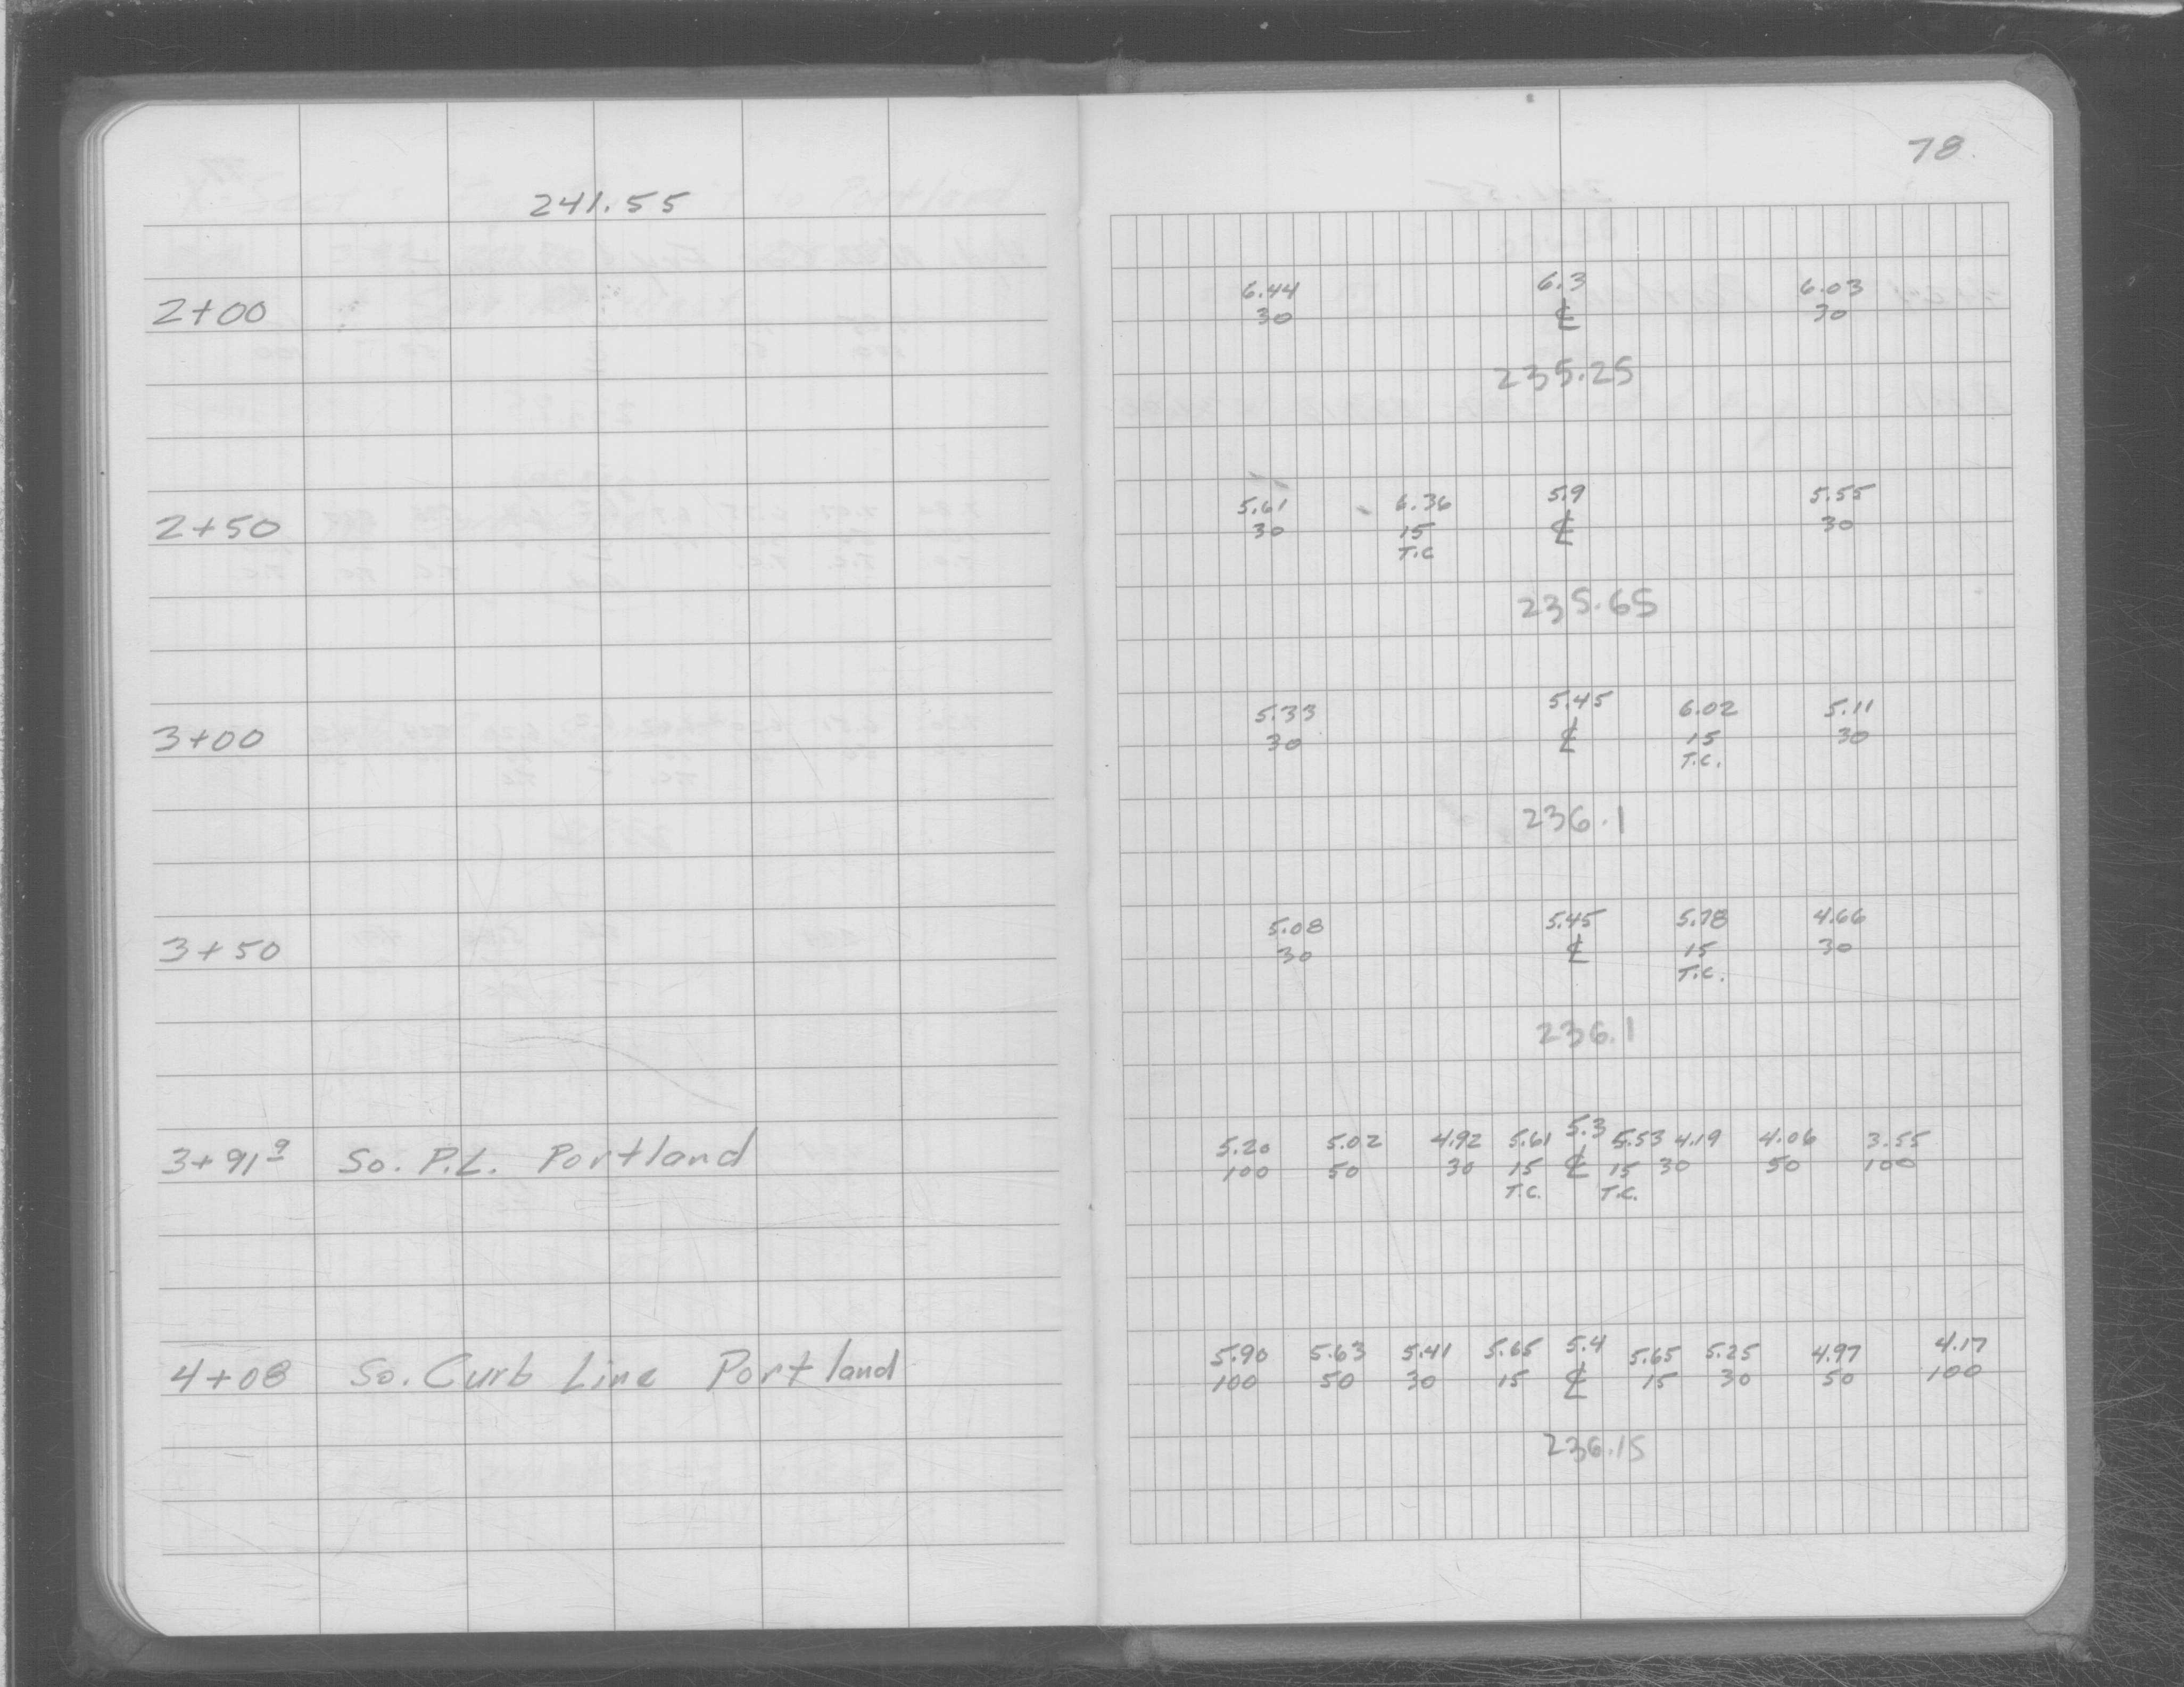 78
241.55
2+00
6.44 6.3 6.03
30 ℄ 30
235.25
2+50
5.61 6.36 5.9 5.55
30 15 ℄ 30
T.C
235.65
3+00
5.33 5.45 6.02 5.11
30 ℄ 15 30
T.C.
236.1
3+50
5.08 5.45 5.78 4.66
30 ℄ 15 30
T.C.
236.1
3+91⁹ So. P.L. Portland
5.20 5.02 4.92 5.61 5.3 5.53 4.19 4.06 3.55
100 50 30 15 ℄ 15 30 50 100
T.C. T.C.
4+08 So. Curb Line Portland
5.90 5.63 5.41 5.65 5.4 5.65 5.25 4.97 4.17
100 50 30 15 ℄ 15 30 50 100
236.15